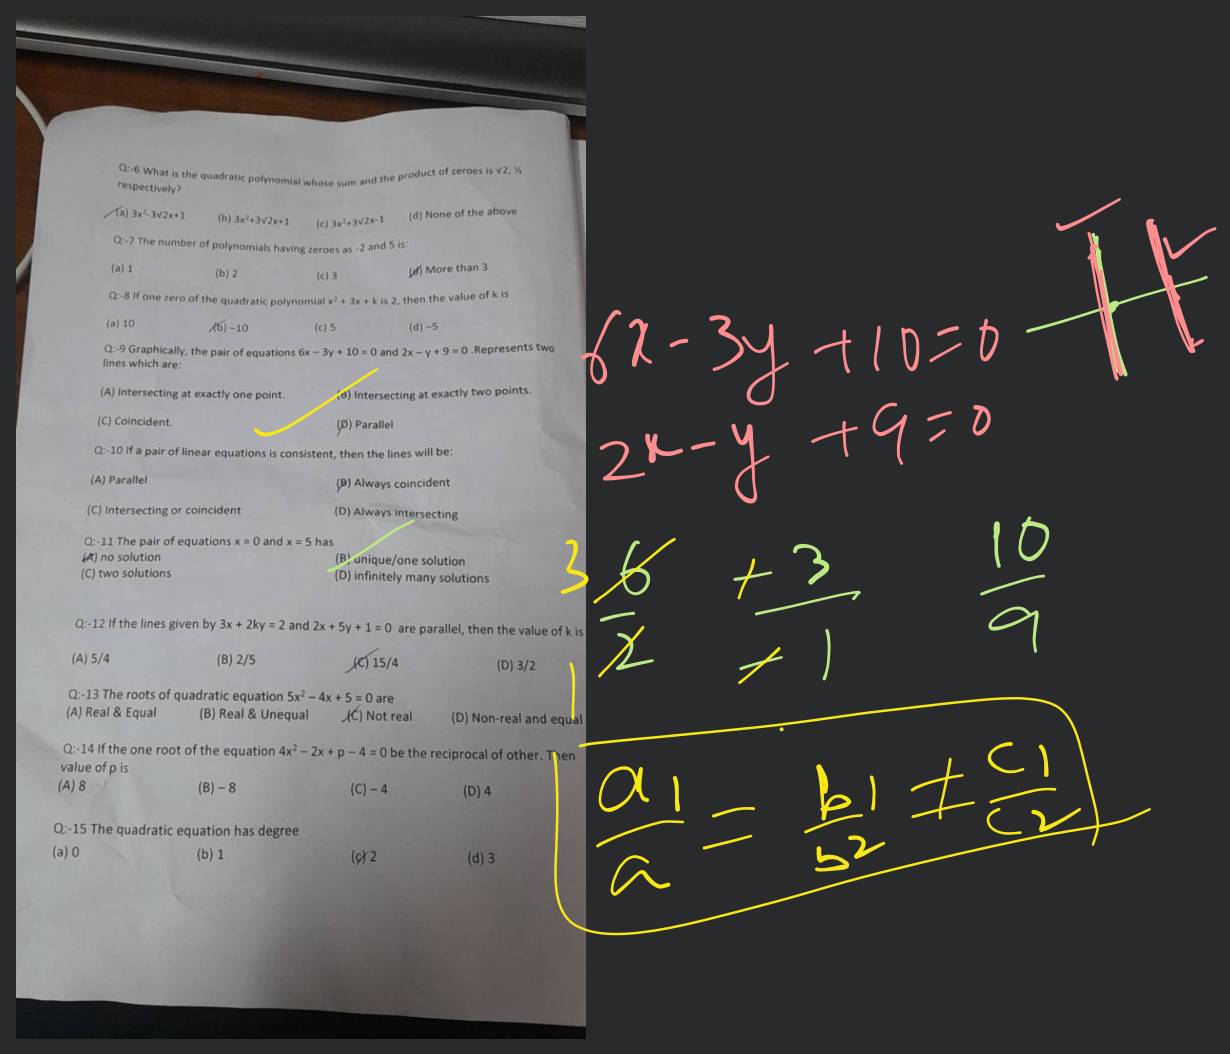 Q:-6 What is the quadratic polynomial whose sum and the product of zeroes is √2, ⅓
respectively?
(a) 3x²-3√2x+1 (b) 3x²+3√2x+1 (c) 3x²+3√2x-1 (d) None of the above
Q:-7 The number of polynomials having zeroes as -2 and 5 is:
(a) 1 (b) 2 (c) 3 (d) More than 3
Q:-8 If one zero of the quadratic polynomial x² + 3x + k is 2, then the value of k is
(a) 10 (b) –10 (c) 5 (d) –5
Q:-9 Graphically, the pair of equations 6x – 3y + 10 = 0 and 2x – y + 9 = 0 .Represents two
lines which are:
(A) Intersecting at exactly one point. (B) Intersecting at exactly two points.
(C) Coincident. (D) Parallel
Q:-10 If a pair of linear equations is consistent, then the lines will be:
(A) Parallel (B) Always coincident
(C) Intersecting or coincident (D) Always intersecting
Q:-11 The pair of equations x = 0 and x = 5 has
(A) no solution (B) unique/one solution
(C) two solutions (D) infinitely many solutions
Q:-12 If the lines given by 3x + 2ky = 2 and 2x + 5y + 1 = 0 are parallel, then the value of k is
(A) 5/4 (B) 2/5 (C) 15/4 (D) 3/2
Q:-13 The roots of quadratic equation 5x² – 4x + 5 = 0 are
(A) Real & Equal (B) Real & Unequal (C) Not real (D) Non-real and equal
Q:-14 If the one root of the equation 4x² – 2x + p – 4 = 0 be the reciprocal of other. Then
value of p is
(A) 8 (B) – 8 (C) – 4 (D) 4
Q:-15 The quadratic equation has degree
(a) 0 (b) 1 (c) 2 (d) 3
6x - 3y + 10 = 0
2x - y + 9 = 0
3 6 + 3 10
1 2 - 1 9
a1 = b1 ≠ c1
a b2 c2